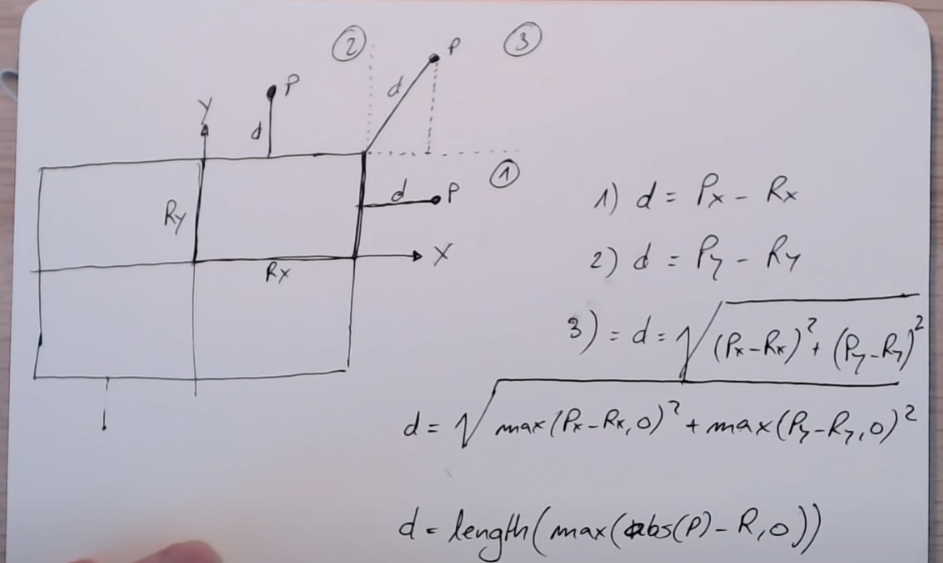 ②
P
③
d
P
Y
d
①
d
P
Ry
X
Rx
1) d = Px - Rx
2) d = Py - Ry
3) = d = √(Px-Rx)² + (Py-Ry)²
d = √max(Px-Rx,0)² + max(Py-Ry,0)²
d = length(max(abs(P)-R,0))